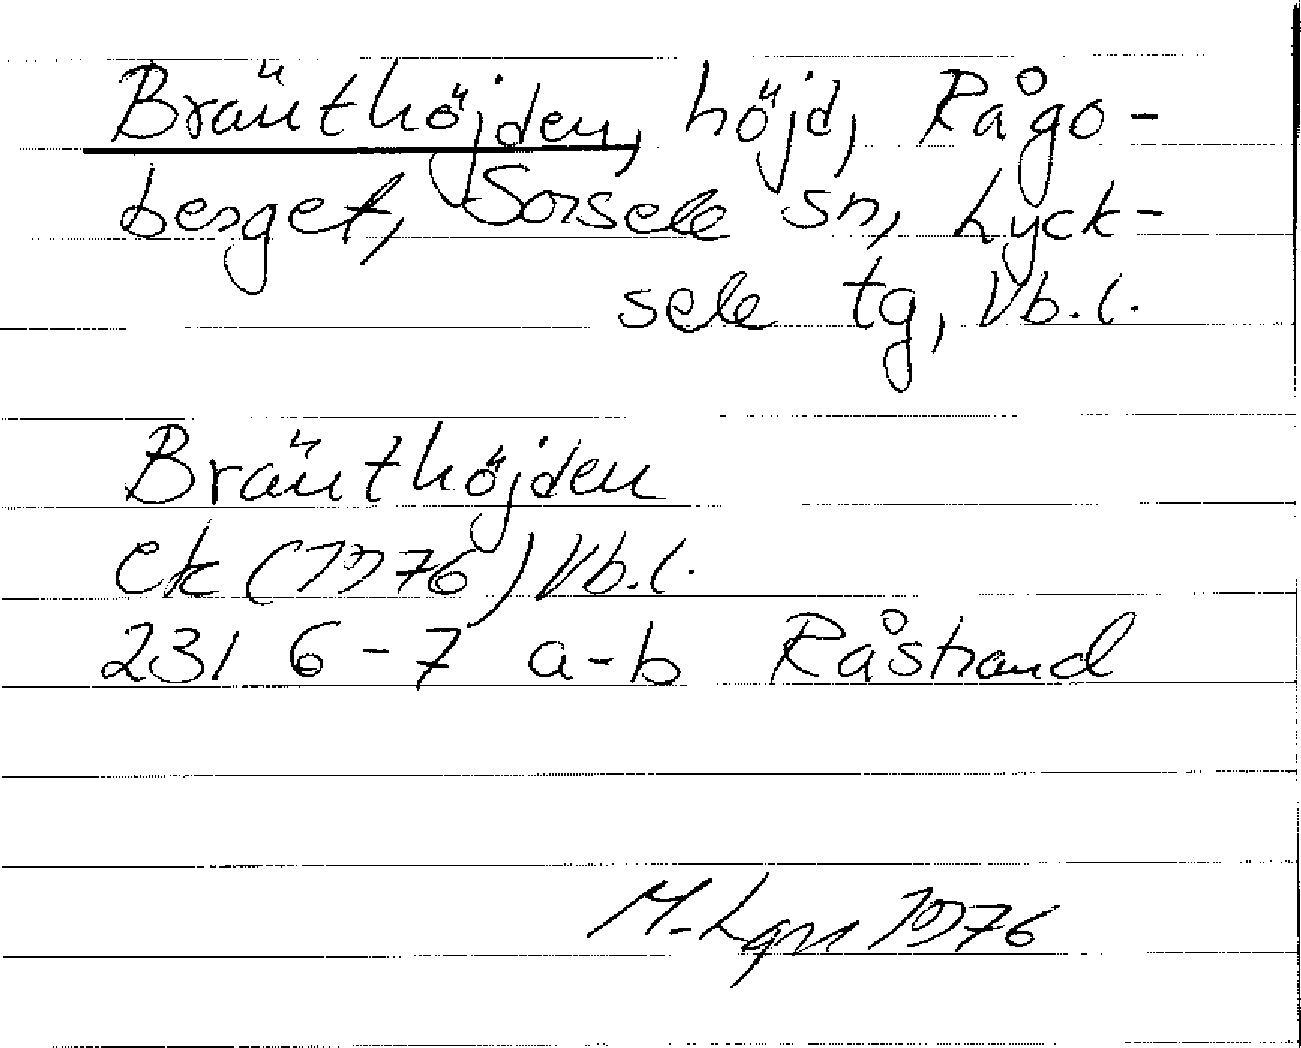 Bränthöjden, höjd, Rågo-
berget, Sorsele sn, Lyck-
sele tg, Vb. l.
Bränthöjden
ek (1976) Vb. l.
231 6-7 a-b Råstrand
M-Lgn 1976